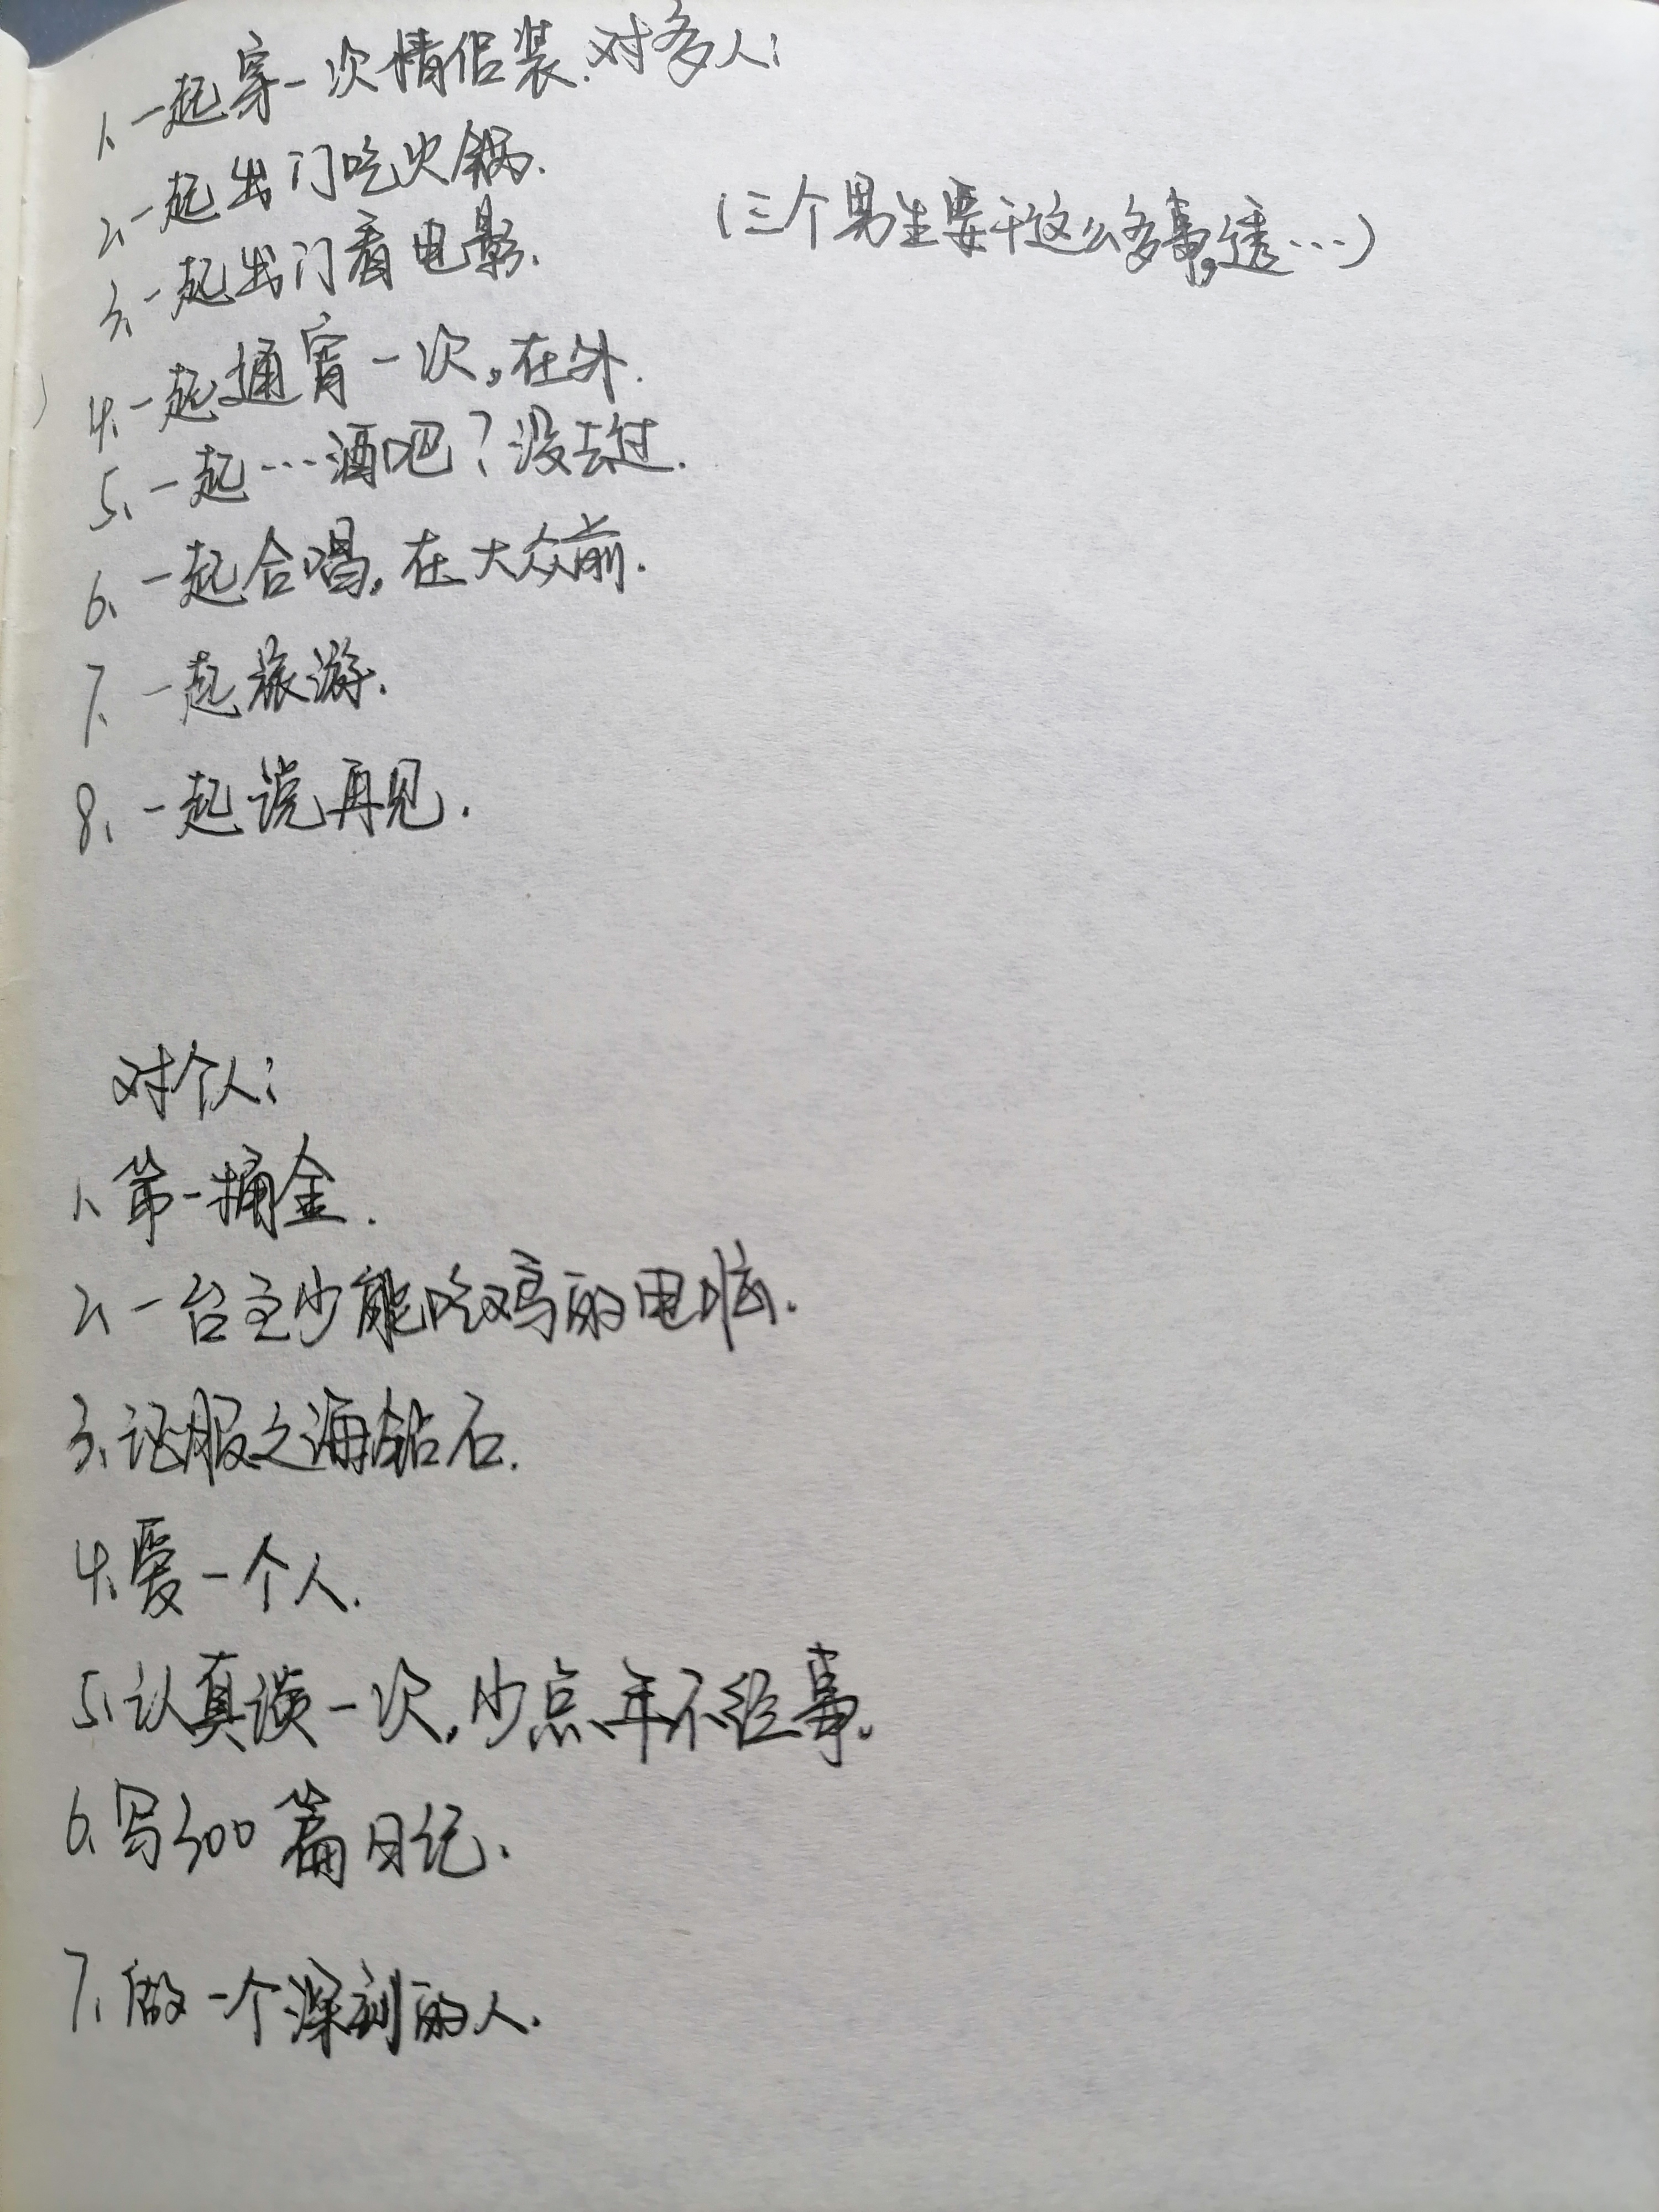 1、一起穿一次情侣装.对多人:
2、一起出门吃火锅.
(三个男生要干这么多事,透…)
3、一起出门看电影.
4、一起通宵一次,在外.
5、一起…酒吧?没去过.
6、一起合唱,在大众前.
7、一起旅游.
8、一起说再见.
对个人:
1、第一桶金.
2、一台至少能吃鸡的电脑.
3、征服之海钻石.
4、爱一个人.
5、认真谈一次,少点年不经事.
6、写300篇日记.
7、做一个深刻的人.